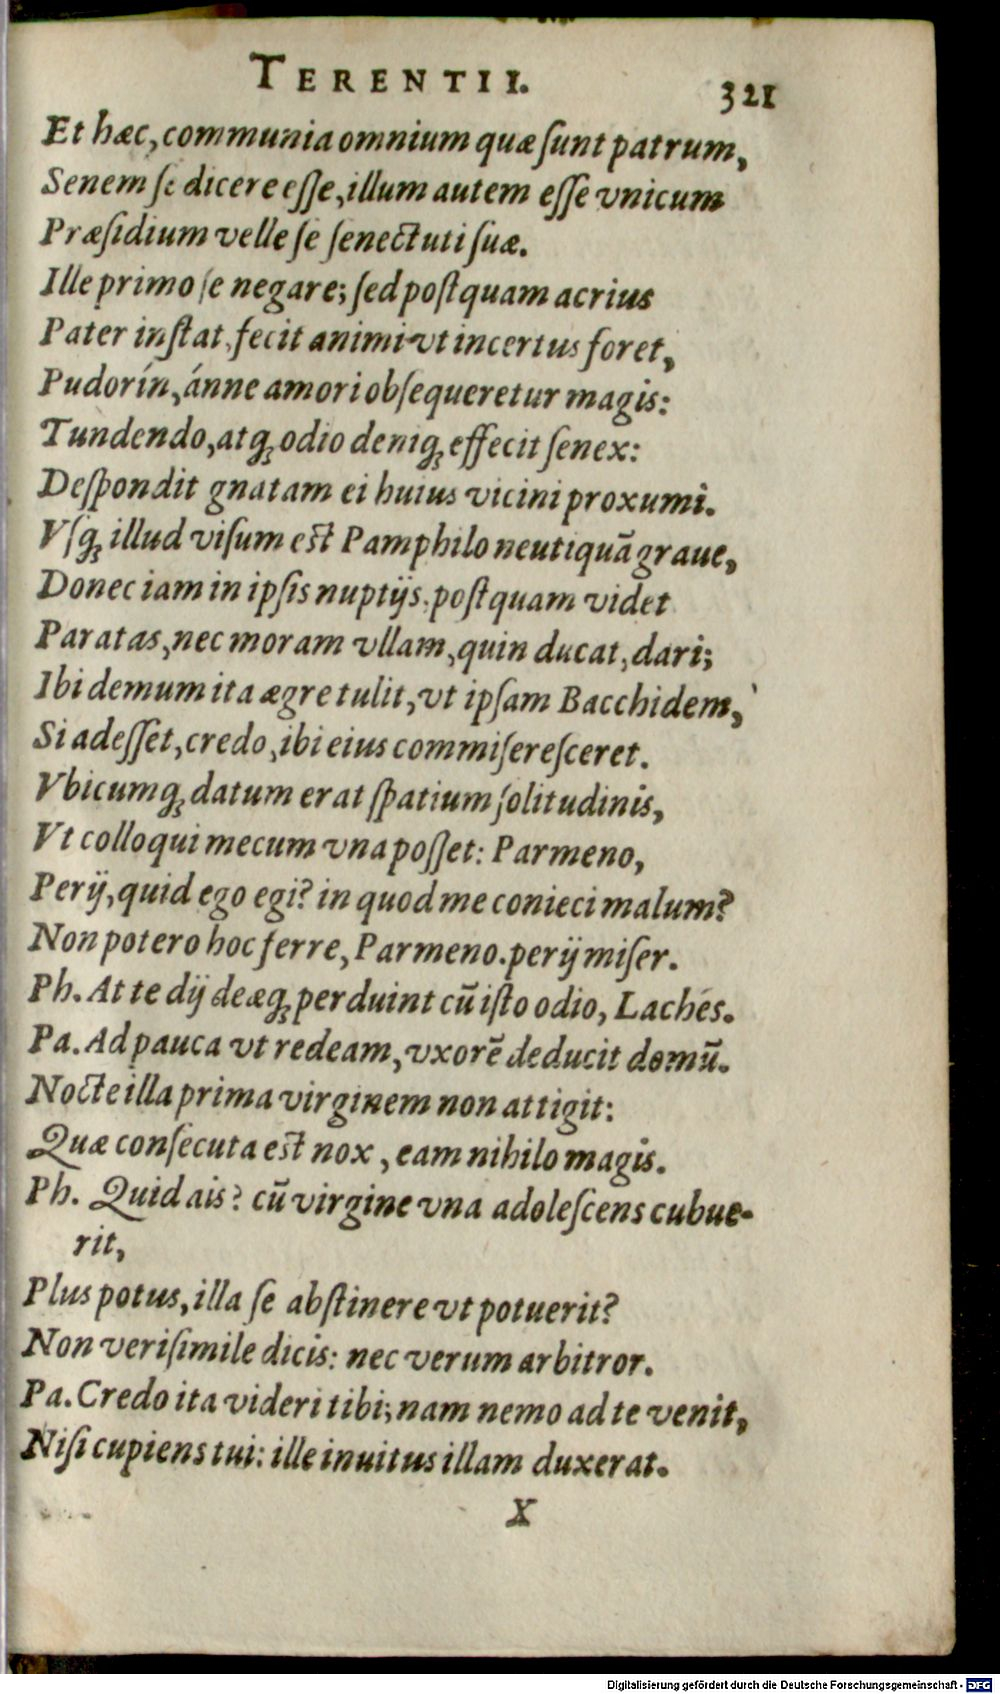 TERENTII. 321
Et hæc, communia omnium quæ ſunt patrum,
Senem ſe dicere eſſe, illum autem eſſe vnicum
Præſidium velle ſe ſenectuti ſuæ.
Ille primo ſe negare; ſed poſtquam acrius
Pater inſtat, fecit animi vt incertus foret,
Pudorín, ánne amori obſequeretur magis:
Tundendo, atq́; odio deniq́; effecit ſenex:
Deſpondit gnatam ei huius vicini proxumi.
Vſq́; illud viſum eſt Pamphilo neutiquã graue,
Donec iam in ipſis nuptijs, poſtquam videt
Paratas, nec moram vllam, quin ducat, dari;
Ibi demum ita ægre tulit, vt ipſam Bacchidem,
Si adeſſet, credo, ibi eius commiſereſceret.
Vbicumq́; datum erat ſpatium ſolitudinis,
Vt colloqui mecum vna poſſet: Parmeno,
Perij, quid ego egi? in quod me conieci malum?
Non potero hoc ferre, Parmeno. perij miſer.
Ph. At te dij deæq́; perduint cũ iſto odio, Lachés.
Pa. Ad pauca vt redeam, vxorẽ deducit domũ.
Nocte illa prima virginem non attigit:
Quæ conſecuta eſt nox, eam nihilo magis.
Ph. Quid ais? cũ virgine vna adoleſcens cubue-
rit,
Plus potus, illa ſe abſtinere vt potuerit?
Non veriſimile dicis: nec verum arbitror.
Pa. Credo ita videri tibi; nam nemo ad te venit,
Niſi cupiens tui: ille inuitus illam duxerat.
X
Digitalisierung gefördert durch die Deutsche Forschungsgemeinschaft - DFG